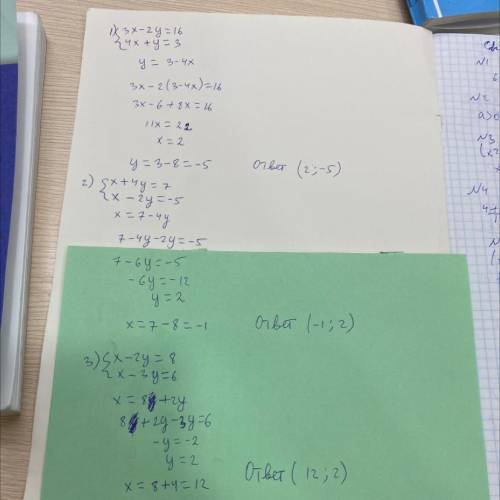 1) { 3x-2y=16
4x+y=3
y = 3-4x
3x-2(3-4x)=16
3x-6+8x=16
11x=22
x=2
y=3-8=-5 Ответ (2;-5)
2) { x+4y=7
x-2y=-5
x=7-4y
7-4y-2y=-5
7-6y=-5
-6y=-12
y=2
x=7-8=-1 Ответ (-1;2)
3) { x-2y=8
x-3y=6
x=8+2y
8+2y-3y=6
-y=-2
y=2
x=8+4=12 Ответ (12;2)
N1
6
N2
a>0
N3
N4